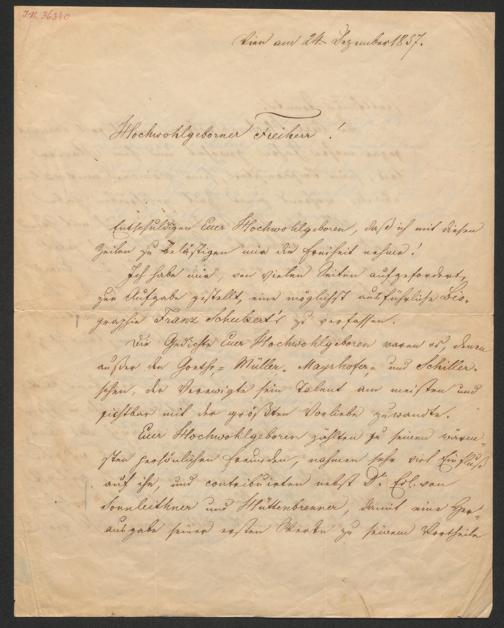 I.N. 36340
Wien am 24t Dezember 1857.
Hochwohlgeborner Freiherr!
Entschuldigen Euer Hochwohlgeboren, daß ich mit diesen
Zeilen zu belästigen mir die Freiheit nehme!
Ich habe mir, von vielen Seiten aufgefordert,
zur Aufgabe gestellt, eine möglichst ausführliche Bio-
graphie Franz Schubert's zu verfassen.
Die Gedichte Euer Hochwohlgeboren waren es, denen
außer den Goethe- Müller- Mayrhofer- und Schiller-
schen, der Verewigte sein Talent am meisten und
sichtbar mit der größten Vorliebe zuwandte.
Euer Hochwohlgeboren zählten zu seinen wärm-
sten persönlichen Freunden, nahmen sehr viel Einfluß
auf ihn, und contribuirten nebst Dr.
Sonnleithner und Hüttenbrenner, damit eine Her-
ausgabe seiner ersten Werke zu seinem Vortheile